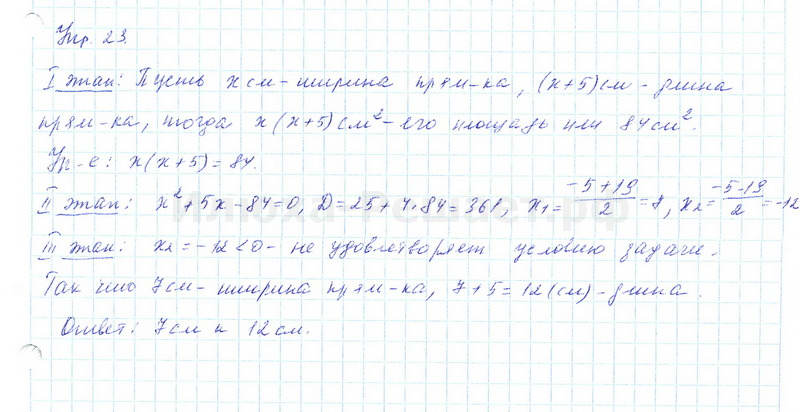 Упр. 23.
I этап: Пусть x см - ширина прям-ка, (x+5) см - длина
прям-ка, тогда x(x+5) см² - его площадь или 84 см².
Ур-е: x(x+5)=84.
II этап: x²+5x-84=0, D=25+4·84=361, x₁=(-5+19)/2=7, x₂=(-5-19)/2=-12
III этап: x₂=-12<0 - не удовлетворяет условию задачи.
Так что 7 см - ширина прям-ка, 7+5=12 (см) - длина.
Ответ: 7 см и 12 см.